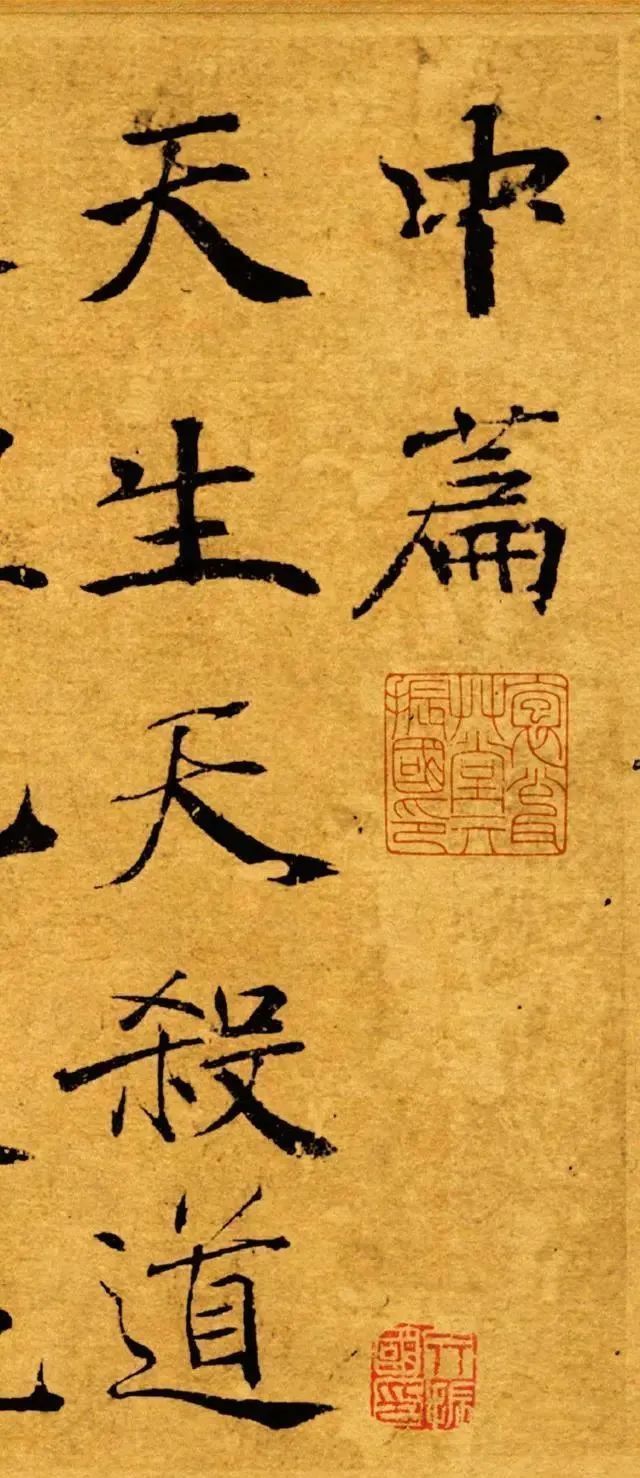 中篇
天生天殺道